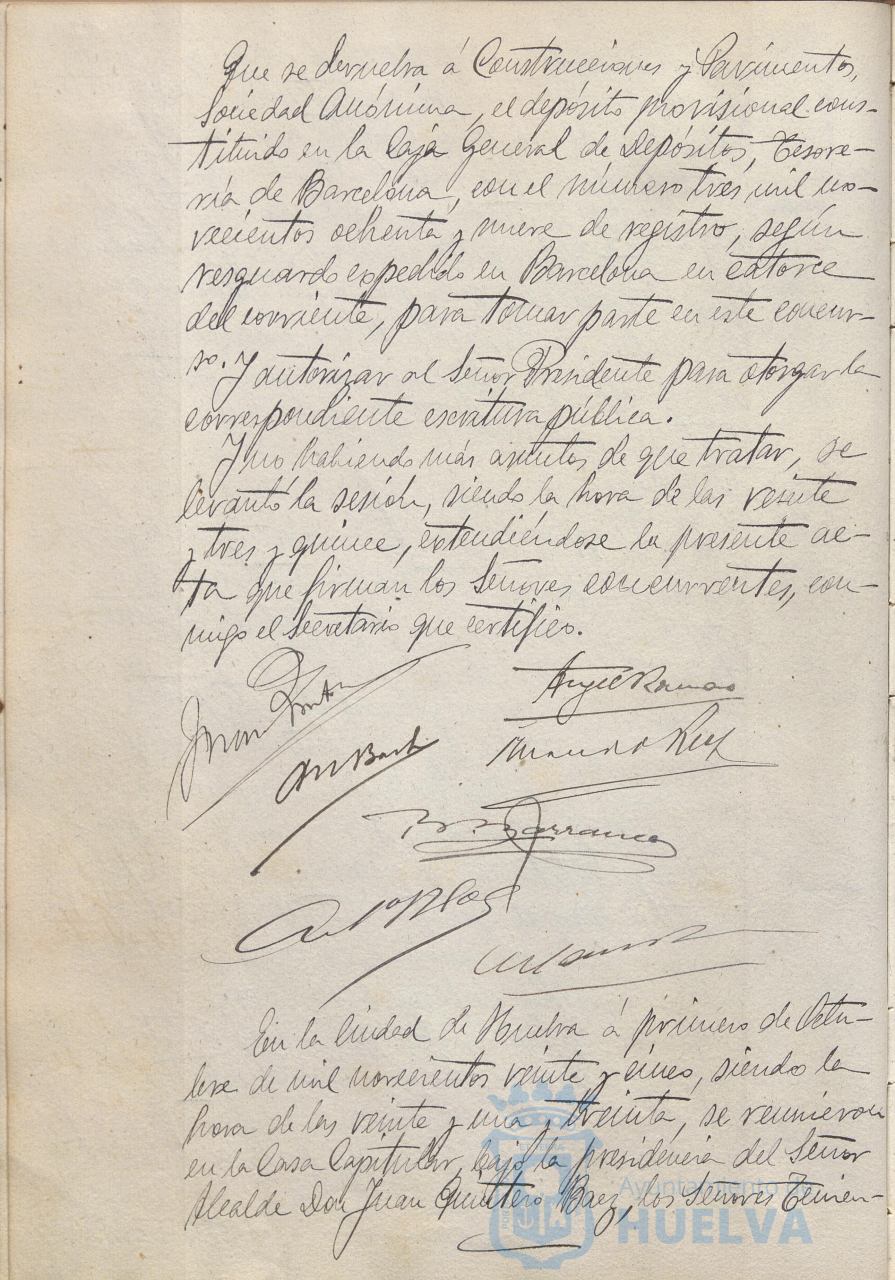 Que se devuelva á Construcciones y Pavimentos,
Sociedad Anónima, el depósito provisional cons-
tituido en la Caja General de Depósitos, Tesore-
ría de Barcelona, con el número tres mil no-
vecientos ochenta y nueve de registro, según
resguardo expedido en Barcelona en catorce
del corriente, para tomar parte en este concur-
so. Y autorizar al Señor Presidente para otorgar la
correspondiente escritura pública.
Y no habiendo más asuntos de que tratar, se
levantó la sesión, siendo la hora de las veinte
y tres y quince, extendiéndose la presente ac-
ta que firman los Señores concurrentes, con-
migo el Secretario que certifico.
Juan
Angel Romero
Ruiz
Barranco
En la Ciudad de Huelva á primero de Octu-
bre de mil novecientos veinte y cinco, siendo la
hora de las veinte y una y treinta, se reunieron
en la Casa Capitular, bajo la presidencia del Señor
Alcalde Don Juan Quintero Baez, los Señores Tenien-
Ayuntamiento de
HUELVA